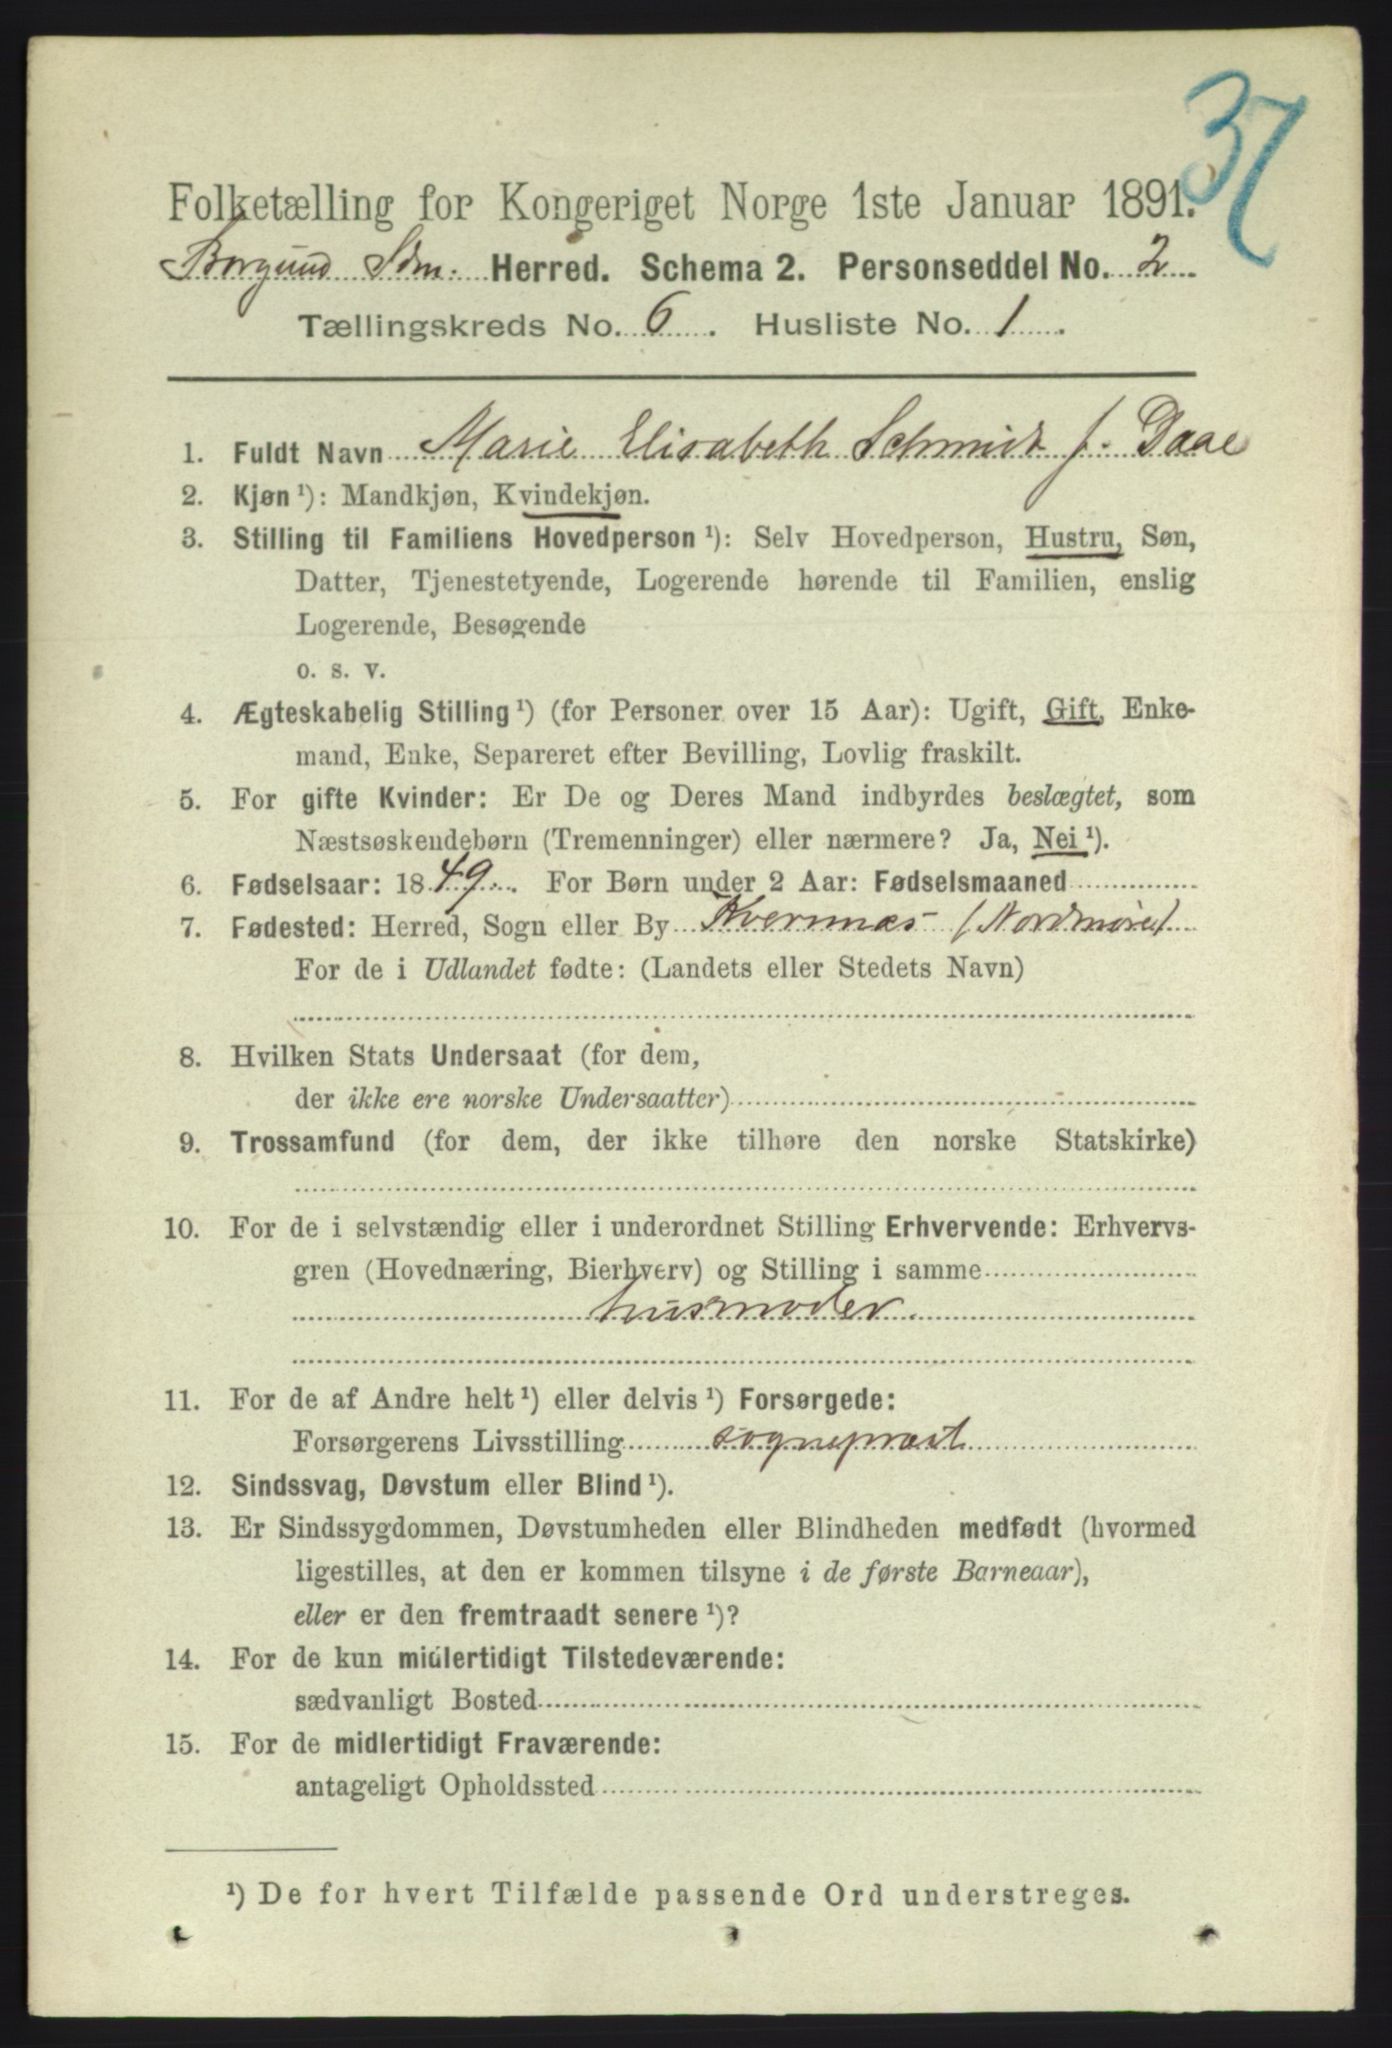 37
Folketælling for Kongeriget Norge 1ste Januar 1891.
Borgund Sdm. Herred. Schema 2. Personseddel No. 2
Tællingskreds No. 6. Husliste No. 1.
1. Fuldt Navn Marie Elisabeth Schmidt f. Daae
2. Kjøn ¹): Mandkjøn, Kvindekjøn.
3. Stilling til Familiens Hovedperson ¹): Selv Hovedperson, Hustru, Søn,
Datter, Tjenestetyende, Logerende hørende til Familien, enslig
Logerende, Besøgende
o. s. v.
4. Ægteskabelig Stilling ¹) (for Personer over 15 Aar): Ugift, Gift, Enke-
mand, Enke, Separeret efter Bevilling, Lovlig fraskilt.
5. For gifte Kvinder: Er De og Deres Mand indbyrdes beslægtet, som
Næstsøskendebørn (Tremenninger) eller nærmere? Ja, Nei ¹).
6. Fødselsaar: 1849. For Børn under 2 Aar: Fødselsmaaned
7. Fødested: Herred, Sogn eller By Kvernnæs (Nordmøre)
For de i Udlandet fødte: (Landets eller Stedets Navn)
8. Hvilken Stats Undersaat (for dem,
der ikke ere norske Undersaatter)
9. Trossamfund (for dem, der ikke tilhøre den norske Statskirke)
10. For de i selvstændig eller i underordnet Stilling Erhvervende: Erhvervs-
gren (Hovednæring, Bierhverv) og Stilling i samme
husmoder.
11. For de af Andre helt ¹) eller delvis ¹) Forsørgede:
Forsørgerens Livsstilling sognepræst
12. Sindssvag, Døvstum eller Blind ¹).
13. Er Sindssygdommen, Døvstumheden eller Blindheden medfødt (hvormed
ligestilles, at den er kommen tilsyne i de første Barneaar),
eller er den fremtraadt senere ¹)?
14. For de kun midlertidigt Tilstedeværende:
sædvanligt Bosted
15. For de midlertidigt Fraværende:
antageligt Opholdssted
¹) De for hvert Tilfælde passende Ord understreges.